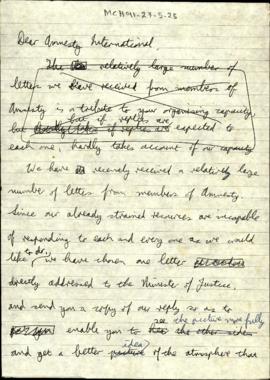 MCH91-27-5-25
Dear Amnesty International,
The relatively large number of
letters we have received from members of
Amnesty is a tribute to your organising capacity
but if replies are
but if replies are expected to
each one, hardly takes account of our capacity
We have recently received a relatively large
number of letters from members of Amnesty.
Since our already strained resources are incapable
of responding to each and every one as we would
like to do, we have chosen one letter
directly addressed to the Minister of Justice,
and send you a copy of our reply so as to
see the picture more fully
enable you to the other side
and get a better picture idea of the atmosphere that